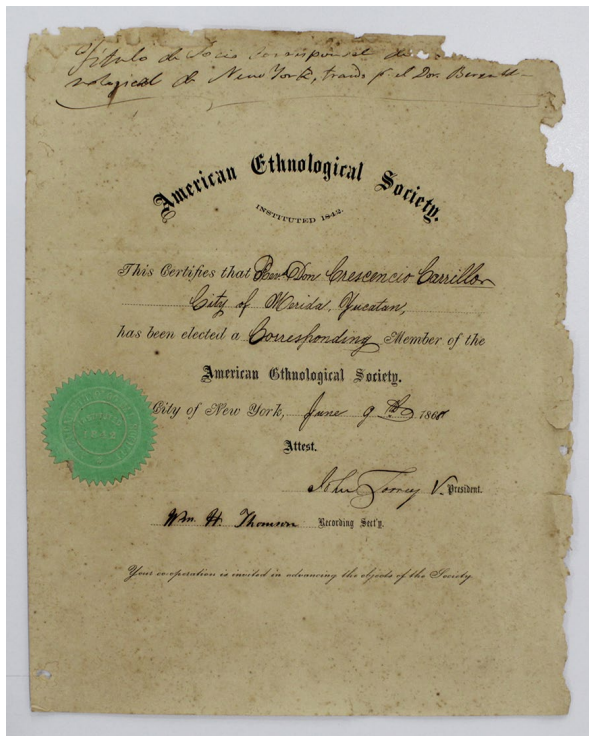 Título de Socio corresponsal de
nological de New York, traido p. el Dor. Berendt
American Ethnological Society.
INSTITUTED 1842.
This Certifies that Rev. Don Crescencio Carrillo
City of Merida, Yucatan,
has been elected a Corresponding Member of the
American Ethnological Society.
City of New York, June 9th
Attest.
John Torrey V. President.
Wm. H. Thomson Recording Sect'y.
Your co-operation is invited in advancing the objects of the Society.
1842